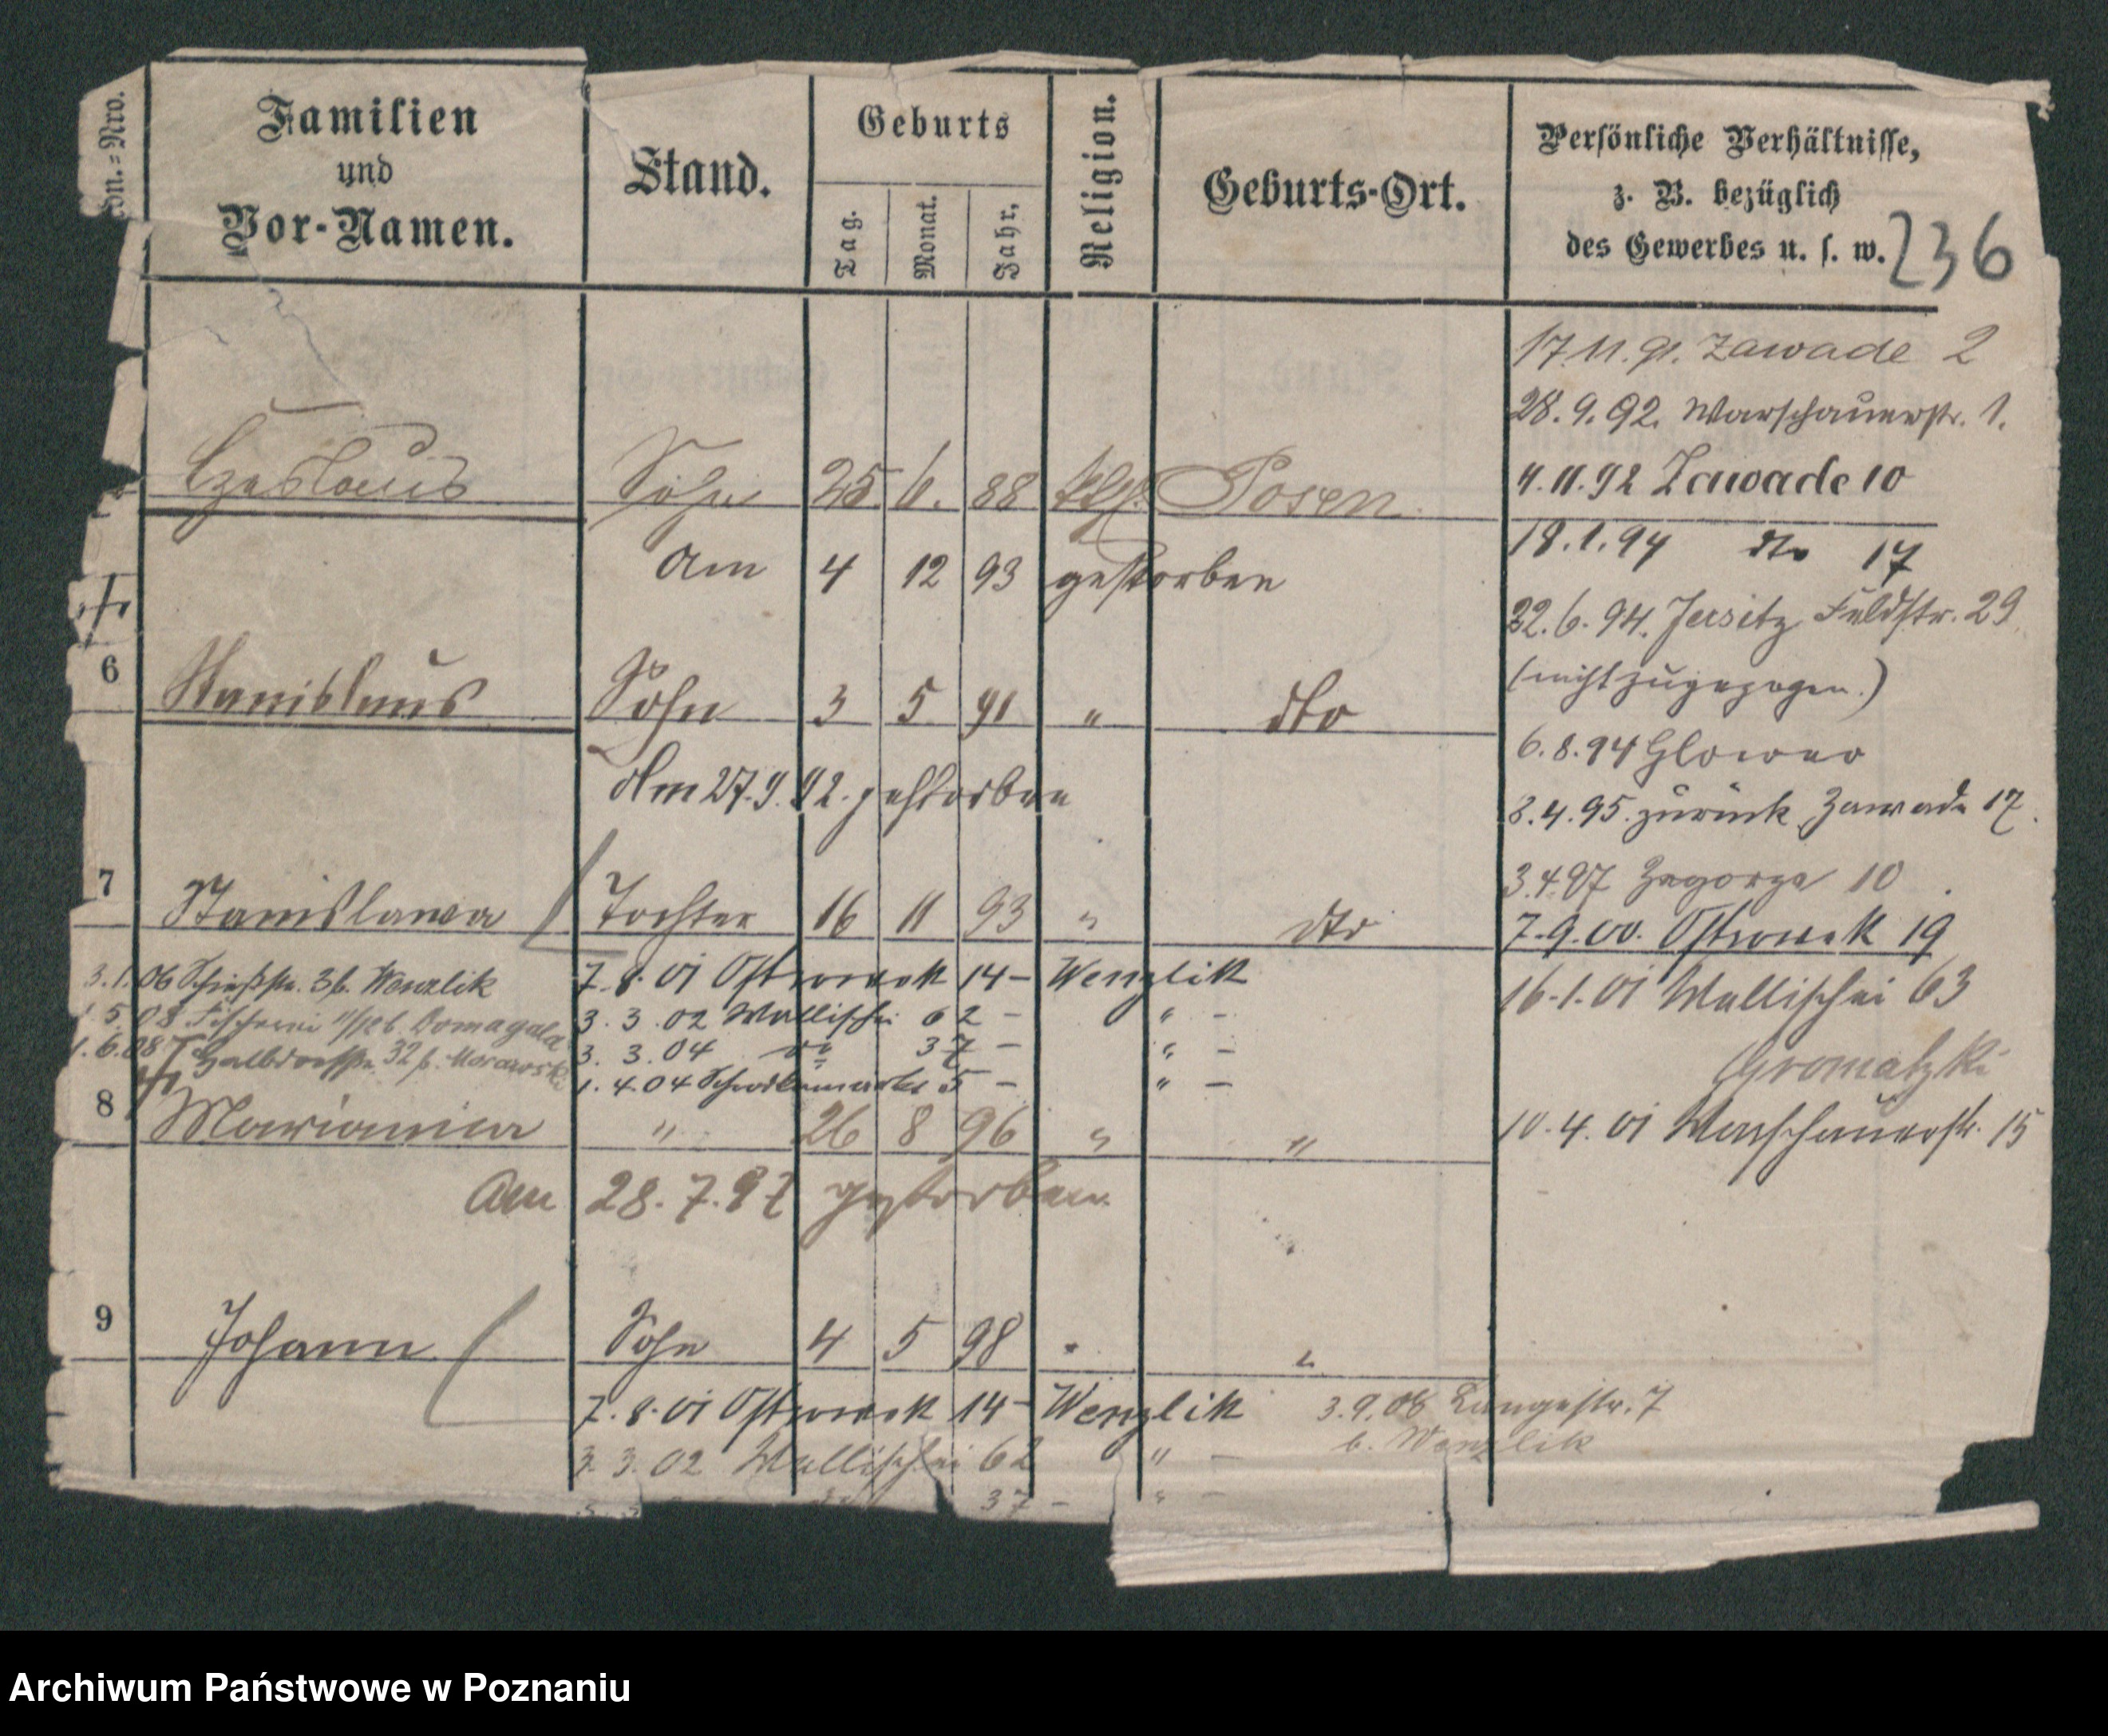 Con.=Nro.
Familien
und
Vor-Namen.
Stand.
Geburts
Tag.
Monat.
Jahr.
Religion.
Geburts-Ort.
Persönliche Verhältnisse,
z. B. bezüglich
des Gewerbes u. s. w.
236
Czeslaus Sohn 25. 6. 88 kth. Posen
Am 4 12 93 gestorben
6 Stanislaus Sohn 3 5 91 " dto
Am 27.9.92. gestorben
7 Stanislawa Tochter 16 11 93 " dto
3.1.06 Schießstr. 3 b. Wenzlik
1.5.08 Fischerei b. Domagala
1.6.08 Halbdorfstr. 32 b. Morawski
7.8.01 Ostrowek 14 - Wenzlik
3.3.02 Wallischei 62 - " -
3.3.04 do 37 - " -
1.4.04 5 - " -
8 Marianna " 26 8 96 " "
Am 28.7.97 gestorben.
9 Johann Sohn 4 5 98 " "
7.8.01 Ostrowek 14 - Wenzlik
3.3.02 Wallischei 62 " -
37 - " -
3.9.08 Langestr. 7
b. Wenzlik
17.11.91. Zawade 2
28.9.92. Warschauerstr. 1.
4.11.92 Zawade 10
18.1.94 dto 17
22.6.94. Jersitz Feldstr. 29
(nicht zugezogen.)
6.8.94 Glowno
8.4.95. zurück Zawade 17.
3.4.97 Zagorze 10
7.9.00. Ostrowek 19
16.1.01 Wallischei 63
Gromatzki
10.4.01 Warschauerstr. 15
Archiwum Państwowe w Poznaniu